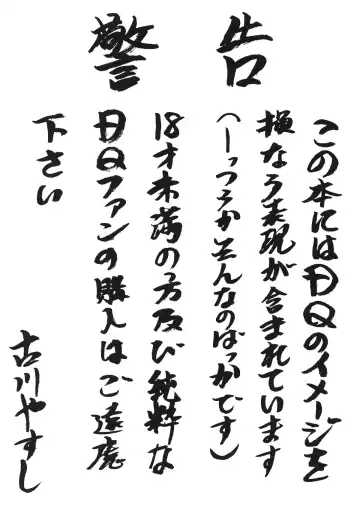 警告
この本にはDQのイメージを
損なう表現が含まれています
(一っつうかそんなのばっかです)
18才未満の方及び純粋な
DQファンの購入はご遠慮
下さい
古川やすし